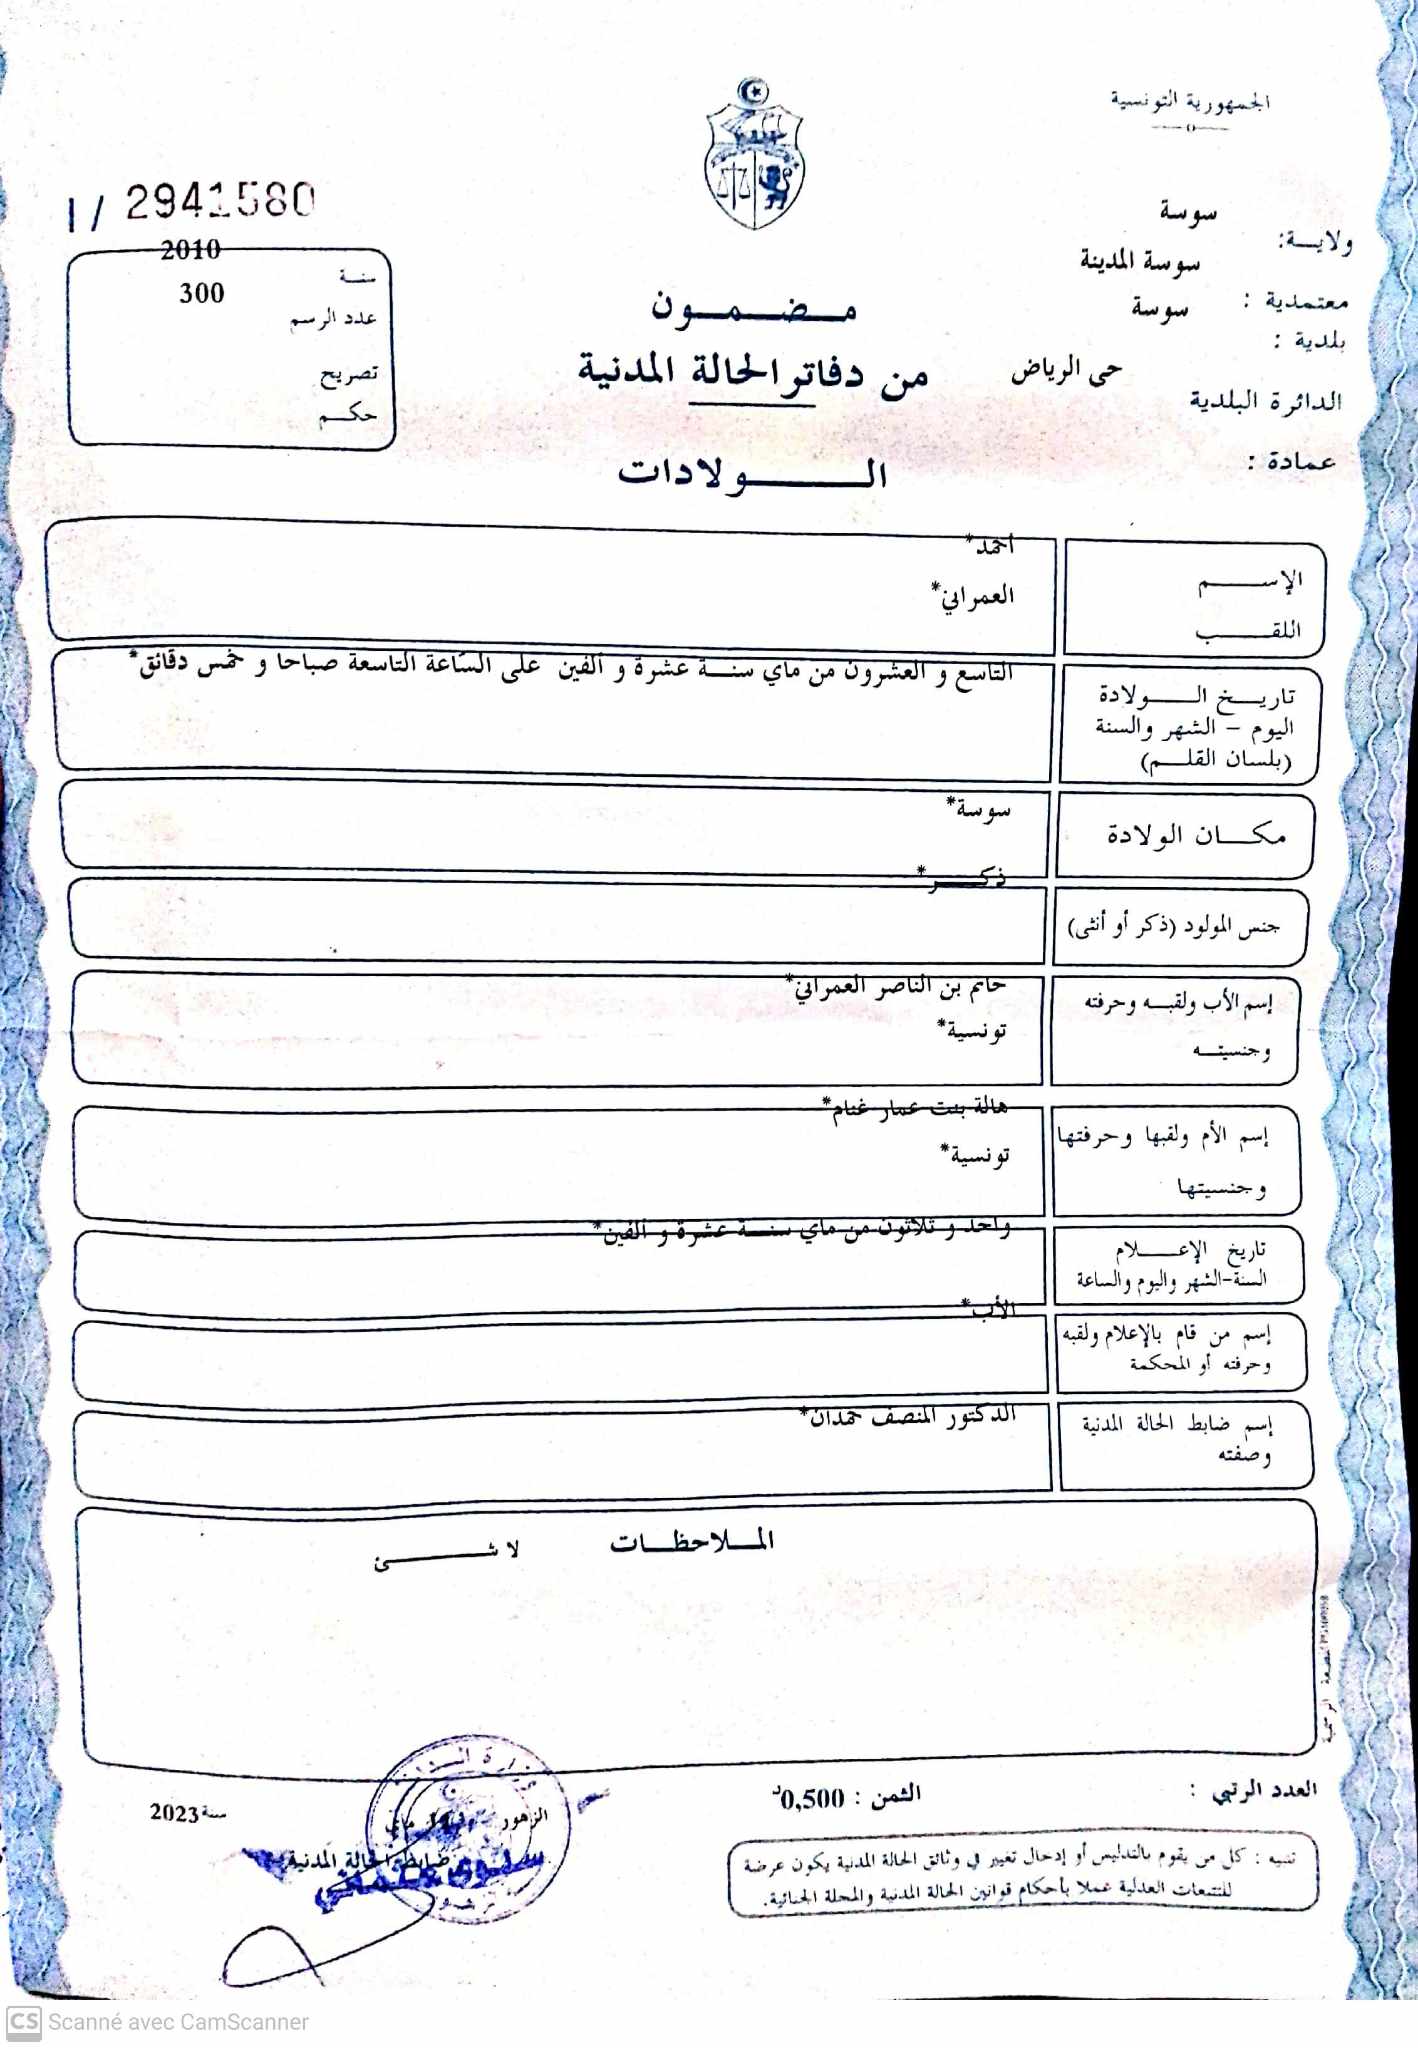 الجمهورية التونسية
I / 2941580
ولاية: سوسة
معتمدية : سوسة المدينة
بلدية : سوسة
الدائرة البلدية حى الرياض
عمادة :
سنة 2010
عدد الرسم 300
تصريح
حكم
مضمون
من دفاتر الحالة المدنية
الولادات
الإسم أحمد*
اللقب العمراني*
تاريخ الولادة
اليوم – الشهر والسنة
(بلسان القلم)
التاسع و العشرون من ماي سنة عشرة و ألفين على الساعة التاسعة صباحا و خمس دقائق*
مكان الولادة سوسة*
جنس المولود (ذكر أو أنثى) ذكر*
إسم الأب ولقبه وحرفته
وجنسيته
حاتم بن الناصر العمراني*
تونسية*
إسم الأم ولقبها وحرفتها
وجنسيتها
هالة بنت عمار غنام*
تونسية*
تاريخ الإعلام
السنة-الشهر واليوم والساعة
واحد و ثلاثون من ماي سنة عشرة و ألفين*
إسم من قام بالإعلام ولقبه
وحرفته أو المحكمة
الأب*
إسم ضابط الحالة المدنية
وصفته
الدكتور المنصف حمدان*
الملاحظات
لا شئ
العدد الرتبي :
الثمن : 0,500د
الزهور في ماي سنة 2023
ضابط الحالة المدنية
تنبيه : كل من يقوم بالتدليس أو إدخال تغيير في وثائق الحالة المدنية يكون عرضة
للتتبعات العدلية عملا بأحكام قوانين الحالة المدنية والمجلة الجنائية.
CS Scanné avec CamScanner